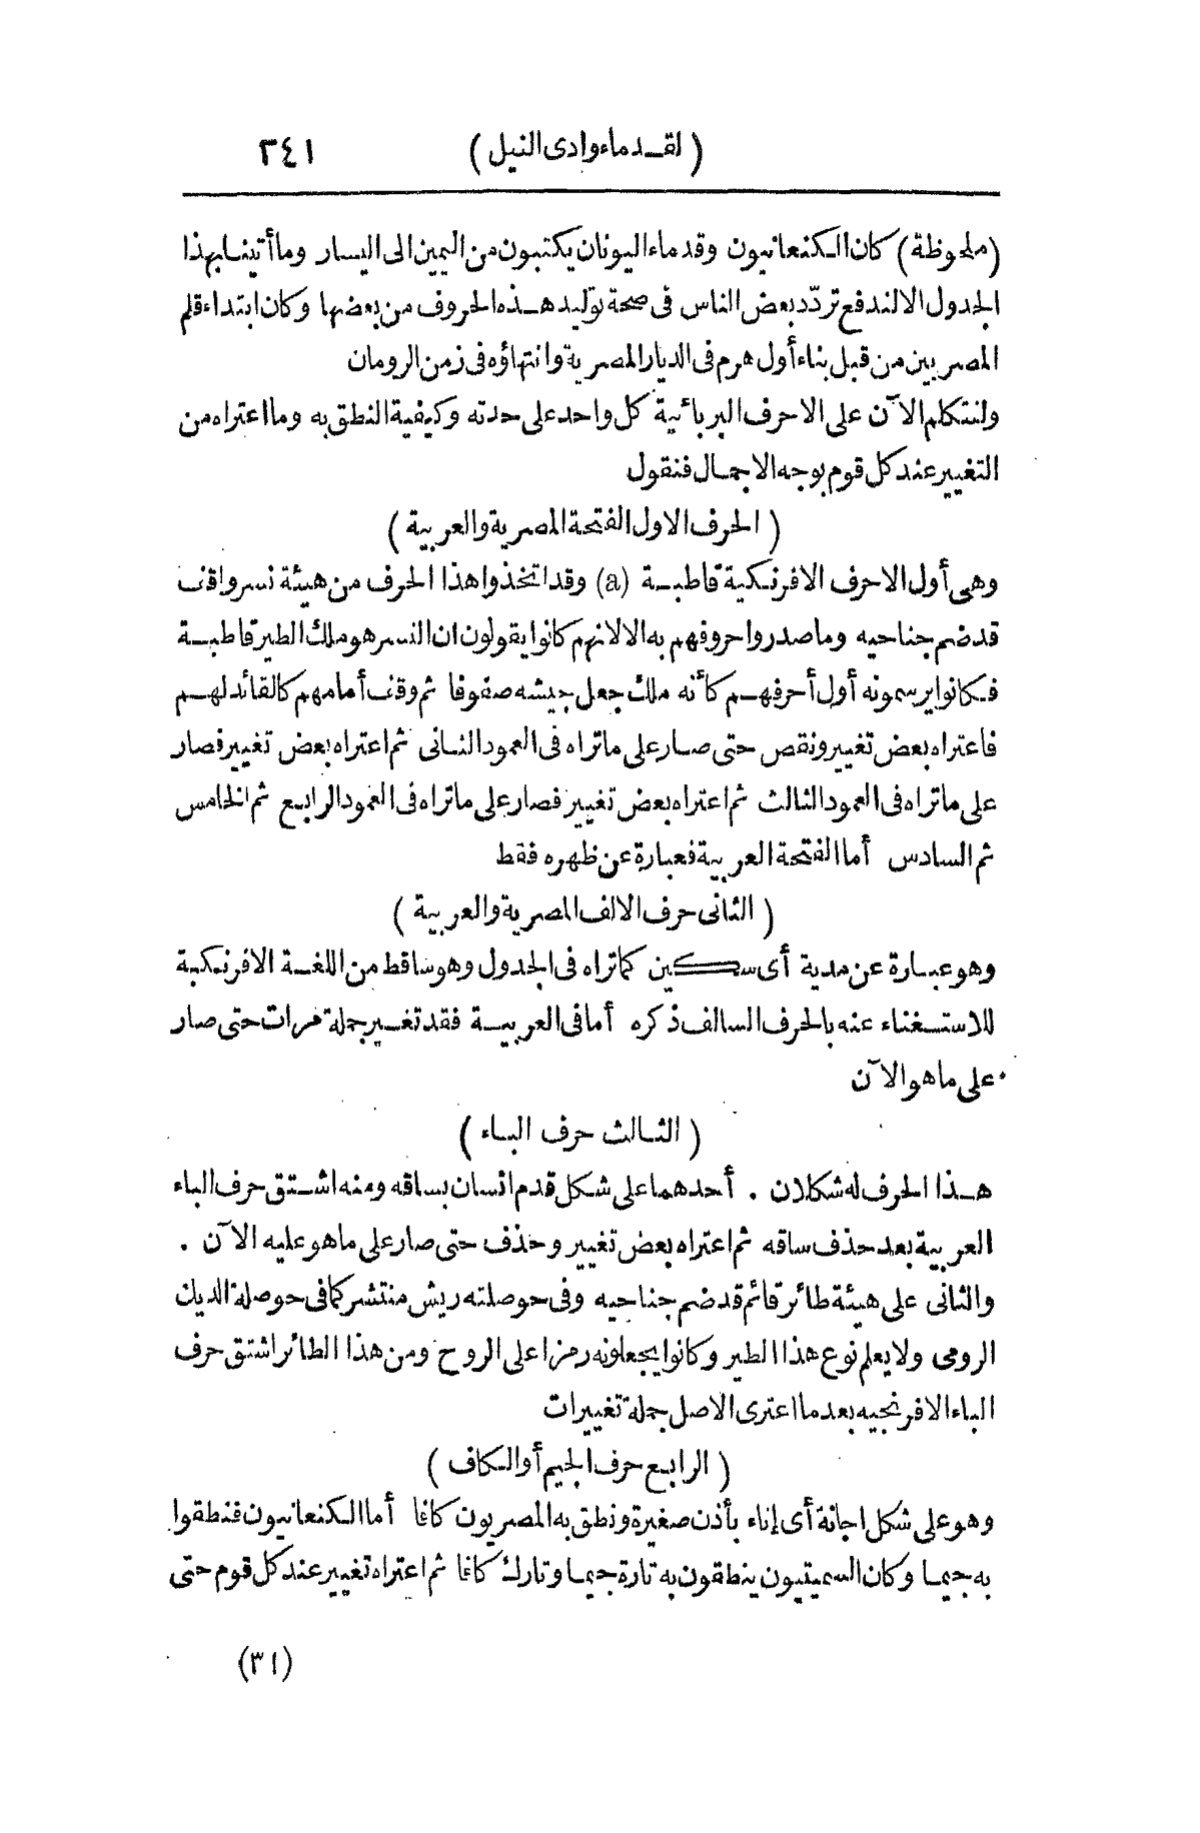 (لقدماء وادى النيل) ٢٤١
(ملحوظة) كان الكنعانيون وقدماء اليونان يكتبون من اليمين الى اليسار وما أتينا بهذا
الجدول الالندفع تردّد بعض الناس فى صحة توليد هذه الحروف من بعضها وكان ابتداء قلم
المصريين من قبل بناء أول هرم فى الديار المصرية وانتهاؤه فى زمن الرومان
ولنتكلم الآن على الاحرف البربائية كل واحد على حدته وكيفية النطق به وما اعتراه من
التغيير عند كل قوم بوجه الاجمال فنقول
(الحرف الاول الفتحة المصرية والعربية)
وهى أول الاحرف الافرنكية قاطبة (a) وقد اتخذوا هذا الحرف من هيئة نسر واقف
قد ضم جناحيه وما صدروا حروفهم به الا لانهم كانوا يقولون ان النسر هو ملك الطير قاطبة
فكانوا يرسمونه أول أحرفهم كأنه ملك جعل جيشه صفوفا ثم وقف أمامهم كالقائد لهم
فاعتراه بعض تغيير ونقص حتى صار على ما تراه فى العمود الثانى ثم اعتراه بعض تغيير فصار
على ما تراه فى العمود الثالث ثم اعتراه بعض تغيير فصار على ما تراه فى العمود الرابع ثم الخامس
ثم السادس أما الفتحة العربية فعبارة عن ظهره فقط
(الثانى حرف الالف المصرية والعربية)
وهو عبارة عن مدية أى سكين كما تراه فى الجدول وهو ساقط من اللغة الافرنكية
للاستغناء عنه بالحرف السالف ذكره أما فى العربية فقد تغير جملة مرات حتى صار
على ما هو الآن
(الثالث حرف الباء)
هذا الحرف له شكلان . أحدهما على شكل قدم انسان بساقه ومنه اشتق حرف الباء
العربية بعد حذف ساقه ثم اعتراه بعض تغيير وحذف حتى صار على ما هو عليه الآن .
والثانى على هيئة طائر قائم قد ضم جناحيه وفى حوصلته ريش منتشر كما فى حوصلة الديك
الرومى ولا يعلم نوع هذا الطير وكانوا يجعلونه رمزا على الروح ومن هذا الطائر اشتق حرف
الباء الافرنجيه بعد ما اعترى الاصل جملة تغييرات
(الرابع حرف الجيم أو الكاف)
وهو على شكل اجانة أى إناء بأذن صغيرة ونطق به المصريون كافا أما الكنعانيون فنطقوا
به جيما وكان السميتيون ينطقون به تارة جيما وتارك كافا ثم اعتراه تغيير عند كل قوم حتى
(٣١)